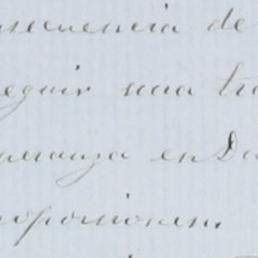 nsecuencia de
eguir una tra
peranza en Du
roporcionem.